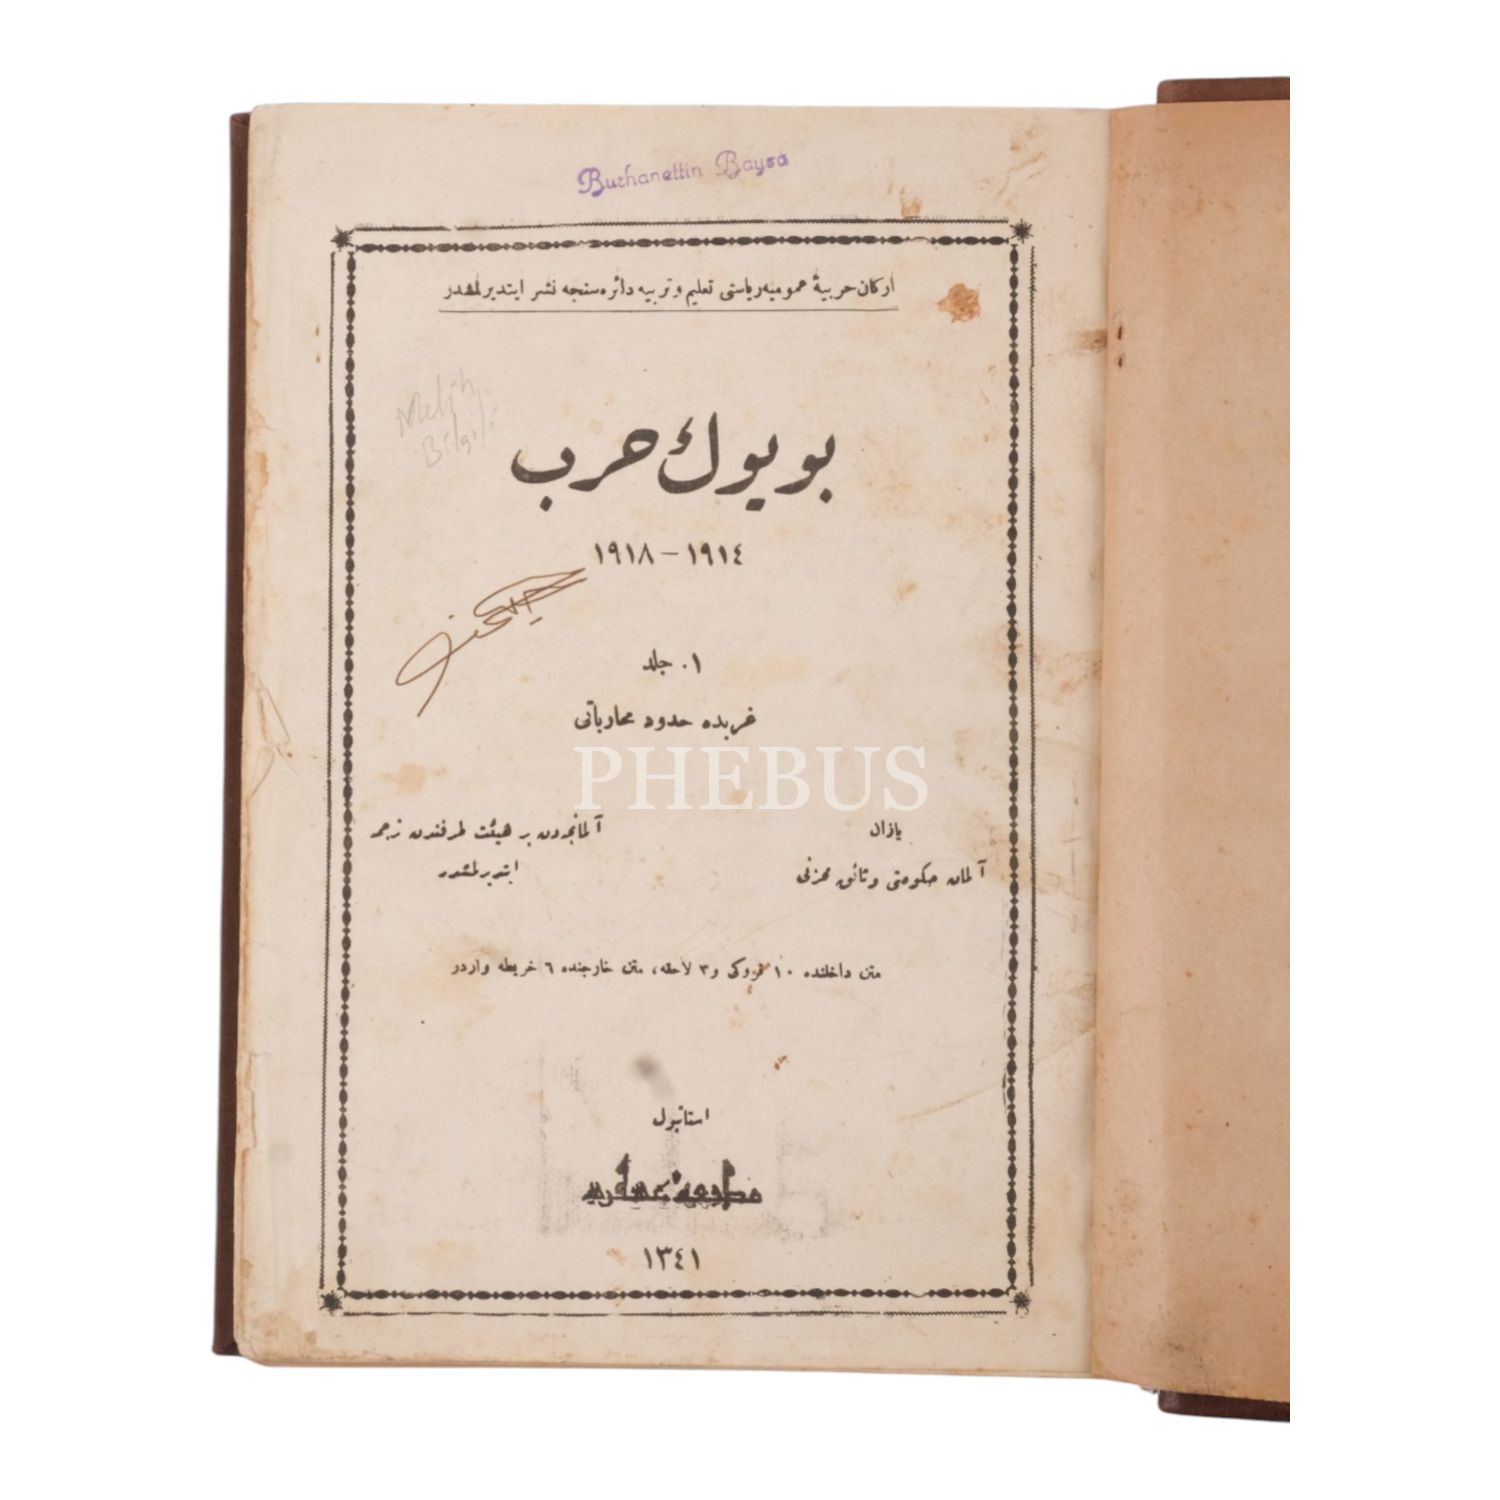 Burhanettin Baysa
اركان حربیهٔ عمومیه ریاستی تعلیم و تربیه دائره سنجه نشر ایتدیرلمشدر
Melih
Bilgili
بویوك حرب
١٩١٤ – ١٩١٨
١. جلد
غربده حدود محارباتی
PHEBUS
یازان
آلمان حكومتی وثائق مخزنی
آلمانجه‌دن بر هیئت طرفندن ترجمه
ایتدیرلمشدر
متن داخلنده ١٠ قروكی و ٣ لاحقه، متن خارجنده ٦ خریطه واردر
استانبول
مطبعهٔ عسكریه
١٣٤١